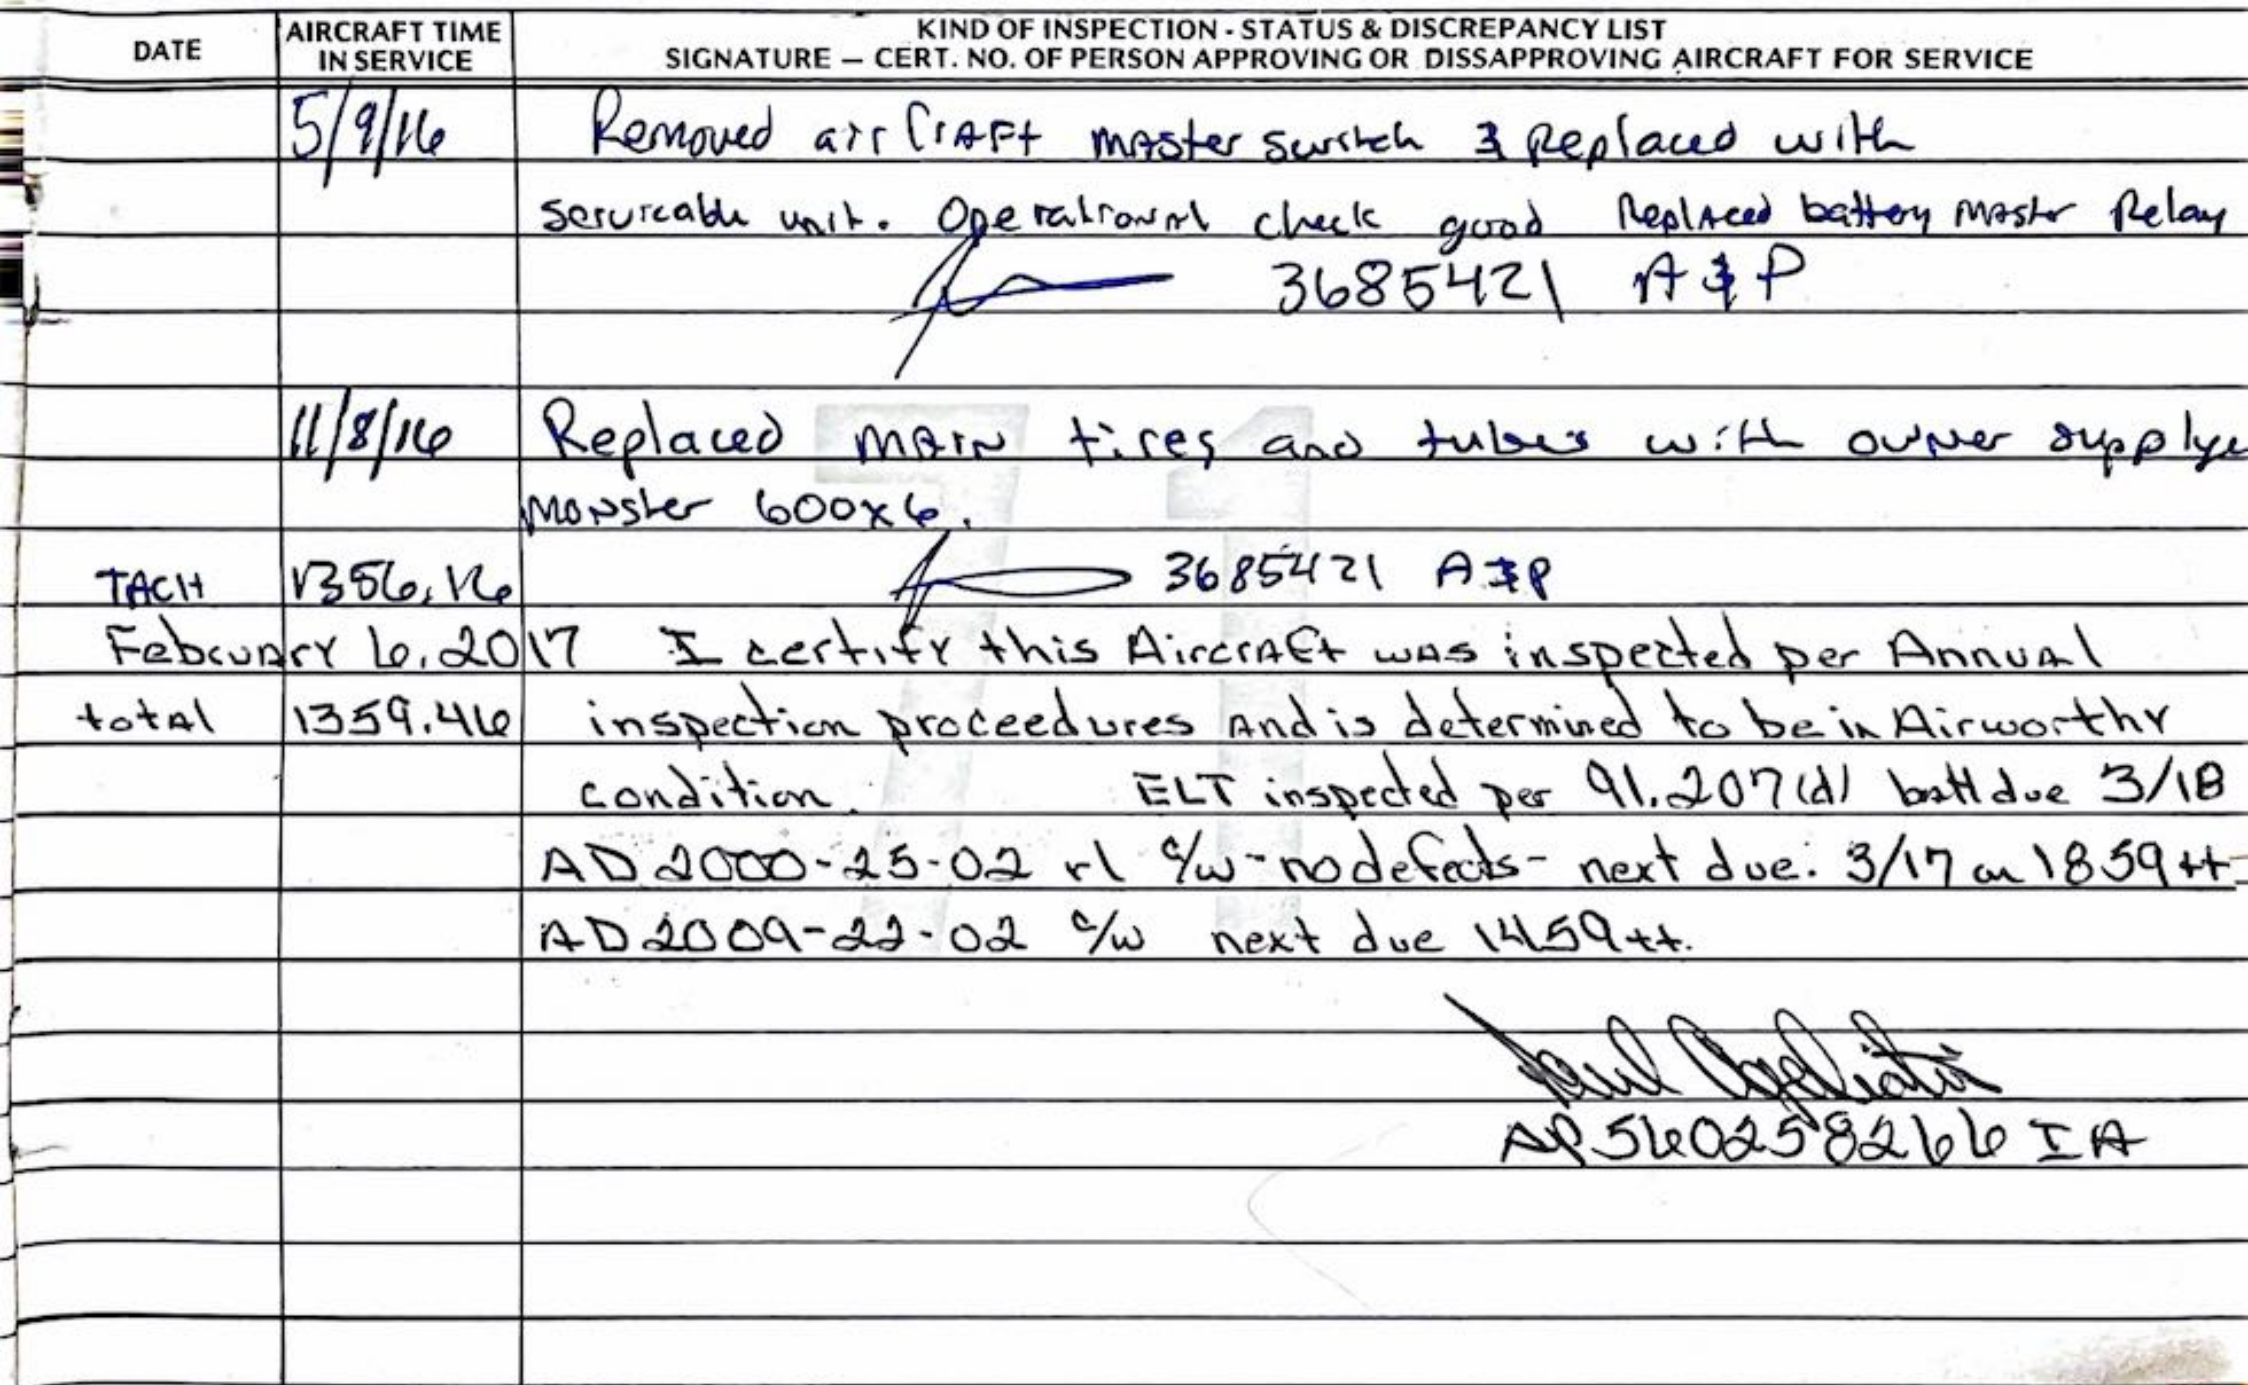 DATE
AIRCRAFT TIME
IN SERVICE
KIND OF INSPECTION - STATUS & DISCREPANCY LIST
SIGNATURE — CERT. NO. OF PERSON APPROVING OR DISSAPPROVING AIRCRAFT FOR SERVICE
5/9/16 Removed airCraft master switch & Replaced with
serviceable unit. Operational check good Replaced battery master Relay
3685421 A & P
11/8/16 Replaced main tires and tubes with owner supplye
monster 600x6.
TACH 1356.16 3685421 A&P
February 6, 2017 I certify this Aircraft was inspected per Annual
total 1359.46 inspection proceedures and is determined to be in Airworthy
condition. ELT inspected per 91.207(d) batt due 3/18
AD 2000-25-02 r1 c/w - no defects - next due: 3/17 or 1859 tt
AD 2009-22-02 c/w next due 1459 tt.
Paul
AP 560258266 IA
71